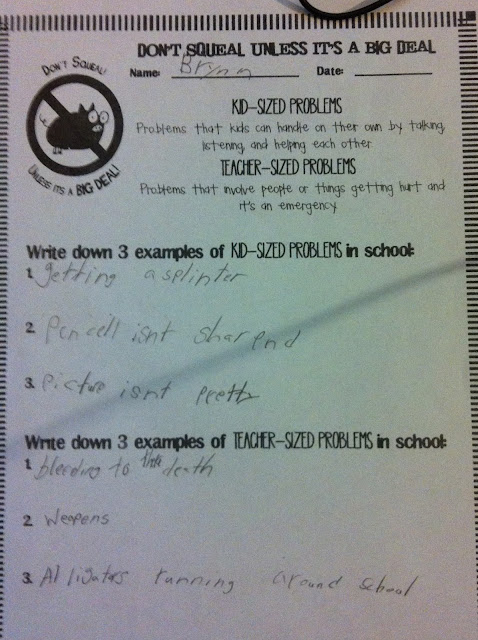 DON'T SQUEAL UNLESS IT'S A BIG DEAL
DON'T SQUEAL!
UNLESS IT'S A BIG DEAL!
Name: Brynn Date:
KID-SIZED PROBLEMS
Problems that kids can handle on their own by talking,
listening, and helping each other
TEACHER-SIZED PROBLEMS
Problems that involve people or things getting hurt and
it's an emergency
Write down 3 examples of KID-SIZED PROBLEMS in school:
1. getting a splinter
2. Pencell isnt sharpend
3. Picture isnt pretty
Write down 3 examples of TEACHER-SIZED PROBLEMS in school:
1. bleeding to death
2. Weapens
3. Alligators running around school